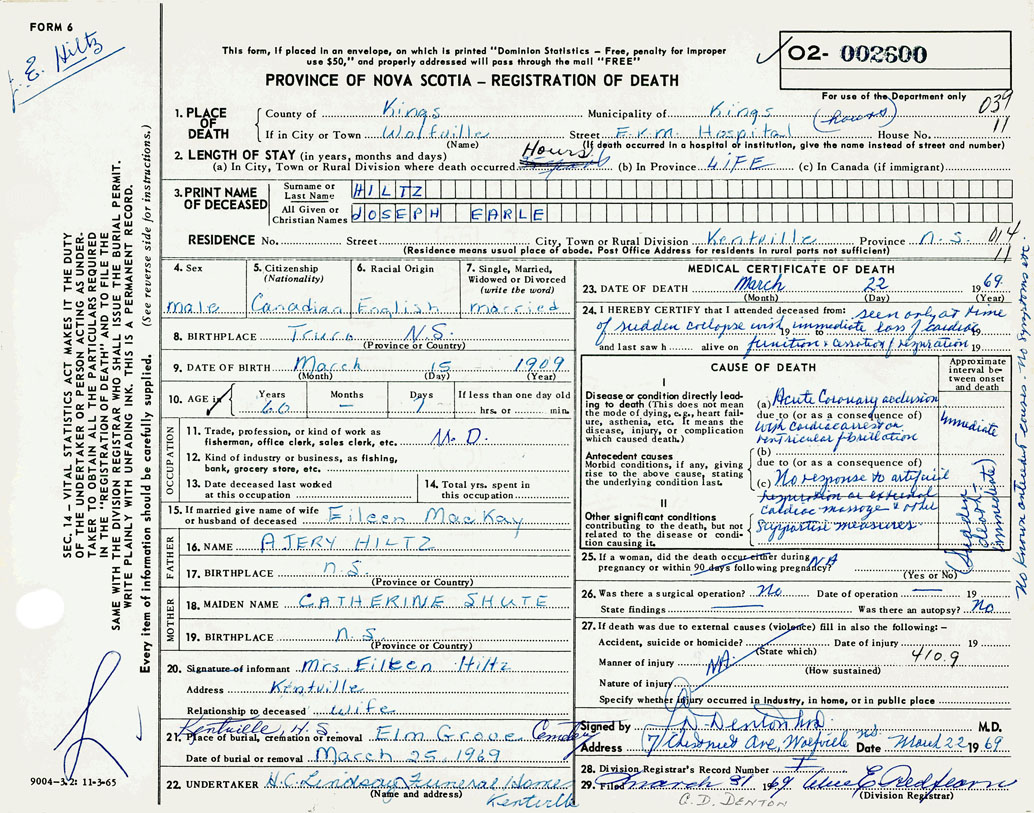 FORM 6
J. E. Hiltz
This form, if placed in an envelope, on which is printed "Dominion Statistics – Free, penalty for improper
use $50," and properly addressed will pass through the mail "FREE"
PROVINCE OF NOVA SCOTIA – REGISTRATION OF DEATH
O2- 002600
For use of the Department only
039
11
1. PLACE OF DEATH
County of Kings Municipality of Kings (hours)
If in City or Town Wolfville Street E.K.M. Hospital House No.
(Name) (If death occurred in a hospital or institution, give the name instead of street and number)
2. LENGTH OF STAY (in years, months and days) Hours
(a) In City, Town or Rural Division where death occurred (b) In Province LIFE (c) In Canada (if immigrant)
3. PRINT NAME OF DECEASED
Surname or Last Name HILTZ
All Given or Christian Names JOSEPH EARLE
RESIDENCE No. Street City, Town or Rural Division Kentville Province N.S. 014
11
(Residence means usual place of abode. Post Office Address for residents in rural parts not sufficient)
4. Sex
male
5. Citizenship
(Nationality)
Canadian
6. Racial Origin
English
7. Single, Married,
Widowed or Divorced
(write the word)
married
8. BIRTHPLACE Truro N.S.
(Province or Country)
9. DATE OF BIRTH March 15 1909
(Month) (Day) (Year)
10. AGE in Years 60 Months – Days 7 If less than one day old
hrs. or min.
OCCUPATION
11. Trade, profession, or kind of work as
fisherman, office clerk, sales clerk, etc. M.D.
12. Kind of industry or business, as fishing,
bank, grocery store, etc.
13. Date deceased last worked
at this occupation
14. Total yrs. spent in
this occupation
15. If married give name of wife
or husband of deceased Eileen MacKay
FATHER
16. NAME AJERY HILTZ
17. BIRTHPLACE N.S.
(Province or Country)
MOTHER
18. MAIDEN NAME CATHERINE SHUTE
19. BIRTHPLACE N.S.
(Province or Country)
20. Signature of informant Mrs Eileen Hiltz
Address Kentville
Relationship to deceased wife
Kentville, N.S.
21. Place of burial, cremation or removal Elm Grove Cemetery
Date of burial or removal March 25, 1969
22. UNDERTAKER H.C. Lindsay Funeral Home
(Name and address) Kentville
MEDICAL CERTIFICATE OF DEATH
23. DATE OF DEATH March 22 1969
(Month) (Day) (Year)
24. I HEREBY CERTIFY that I attended deceased from: seen only at time
of sudden collapse with 19 immediate loss of cardiac 19
and last saw h alive on function & cessation of respiration 19
CAUSE OF DEATH
Approximate
interval be-
tween onset
and death
I
Disease or condition directly lead-
ing to death (This does not mean
the mode of dying, e.g., heart fail-
ure, asthenia, etc. It means the
disease, injury, or complication
which caused death.)
(a) Acute Coronary occlusion
due to (or as a consequence of)
with cardiac arrest or
ventricular fibrillation
immediate
Antecedent causes
Morbid conditions, if any, giving
rise to the above cause, stating
the underlying condition last.
(b)
due to (or as a consequence of)
(c) No response to artificial
respiration or external
cardiac massage & other
supportive measures
(Sudden
death –
immediate)
II
Other significant conditions
contributing to the death, but not
related to the disease or condi-
tion causing it.
No known antecedent causes. No symptoms etc.
25. If a woman, did the death occur either during
pregnancy or within 90 days following pregnancy? NA
(Yes or No)
26. Was there a surgical operation? No Date of operation — 19
State findings — Was there an autopsy? No
27. If death was due to external causes (violence) fill in also the following: –
Accident, suicide or homicide? Date of injury 19
(State which) 410.9
Manner of injury NA
(How sustained)
Nature of injury
Specify whether injury occurred in industry, in home, or in public place
Signed by D. Denton M.D. M.D.
Address 7 Chestnut Ave, Wolfville N.S. Date March 22 1969
28. Division Registrar's Record Number
29. Filed March 31 1969
(Division Registrar)
C. D. DENTON
SEC. 14 – VITAL STATISTICS ACT MAKES IT THE DUTY
OF THE UNDERTAKER OR PERSON ACTING AS UNDER-
TAKER TO OBTAIN ALL THE PARTICULARS REQUIRED
IN THE "REGISTRATION OF DEATH" AND TO FILE THE
SAME WITH THE DIVISION REGISTRAR WHO SHALL ISSUE THE BURIAL PERMIT.
WRITE PLAINLY WITH UNFADING INK. THIS IS A PERMANENT RECORD.
Every item of information should be carefully supplied. (See reverse side for instructions.)
9004-3.2: 11-3-65